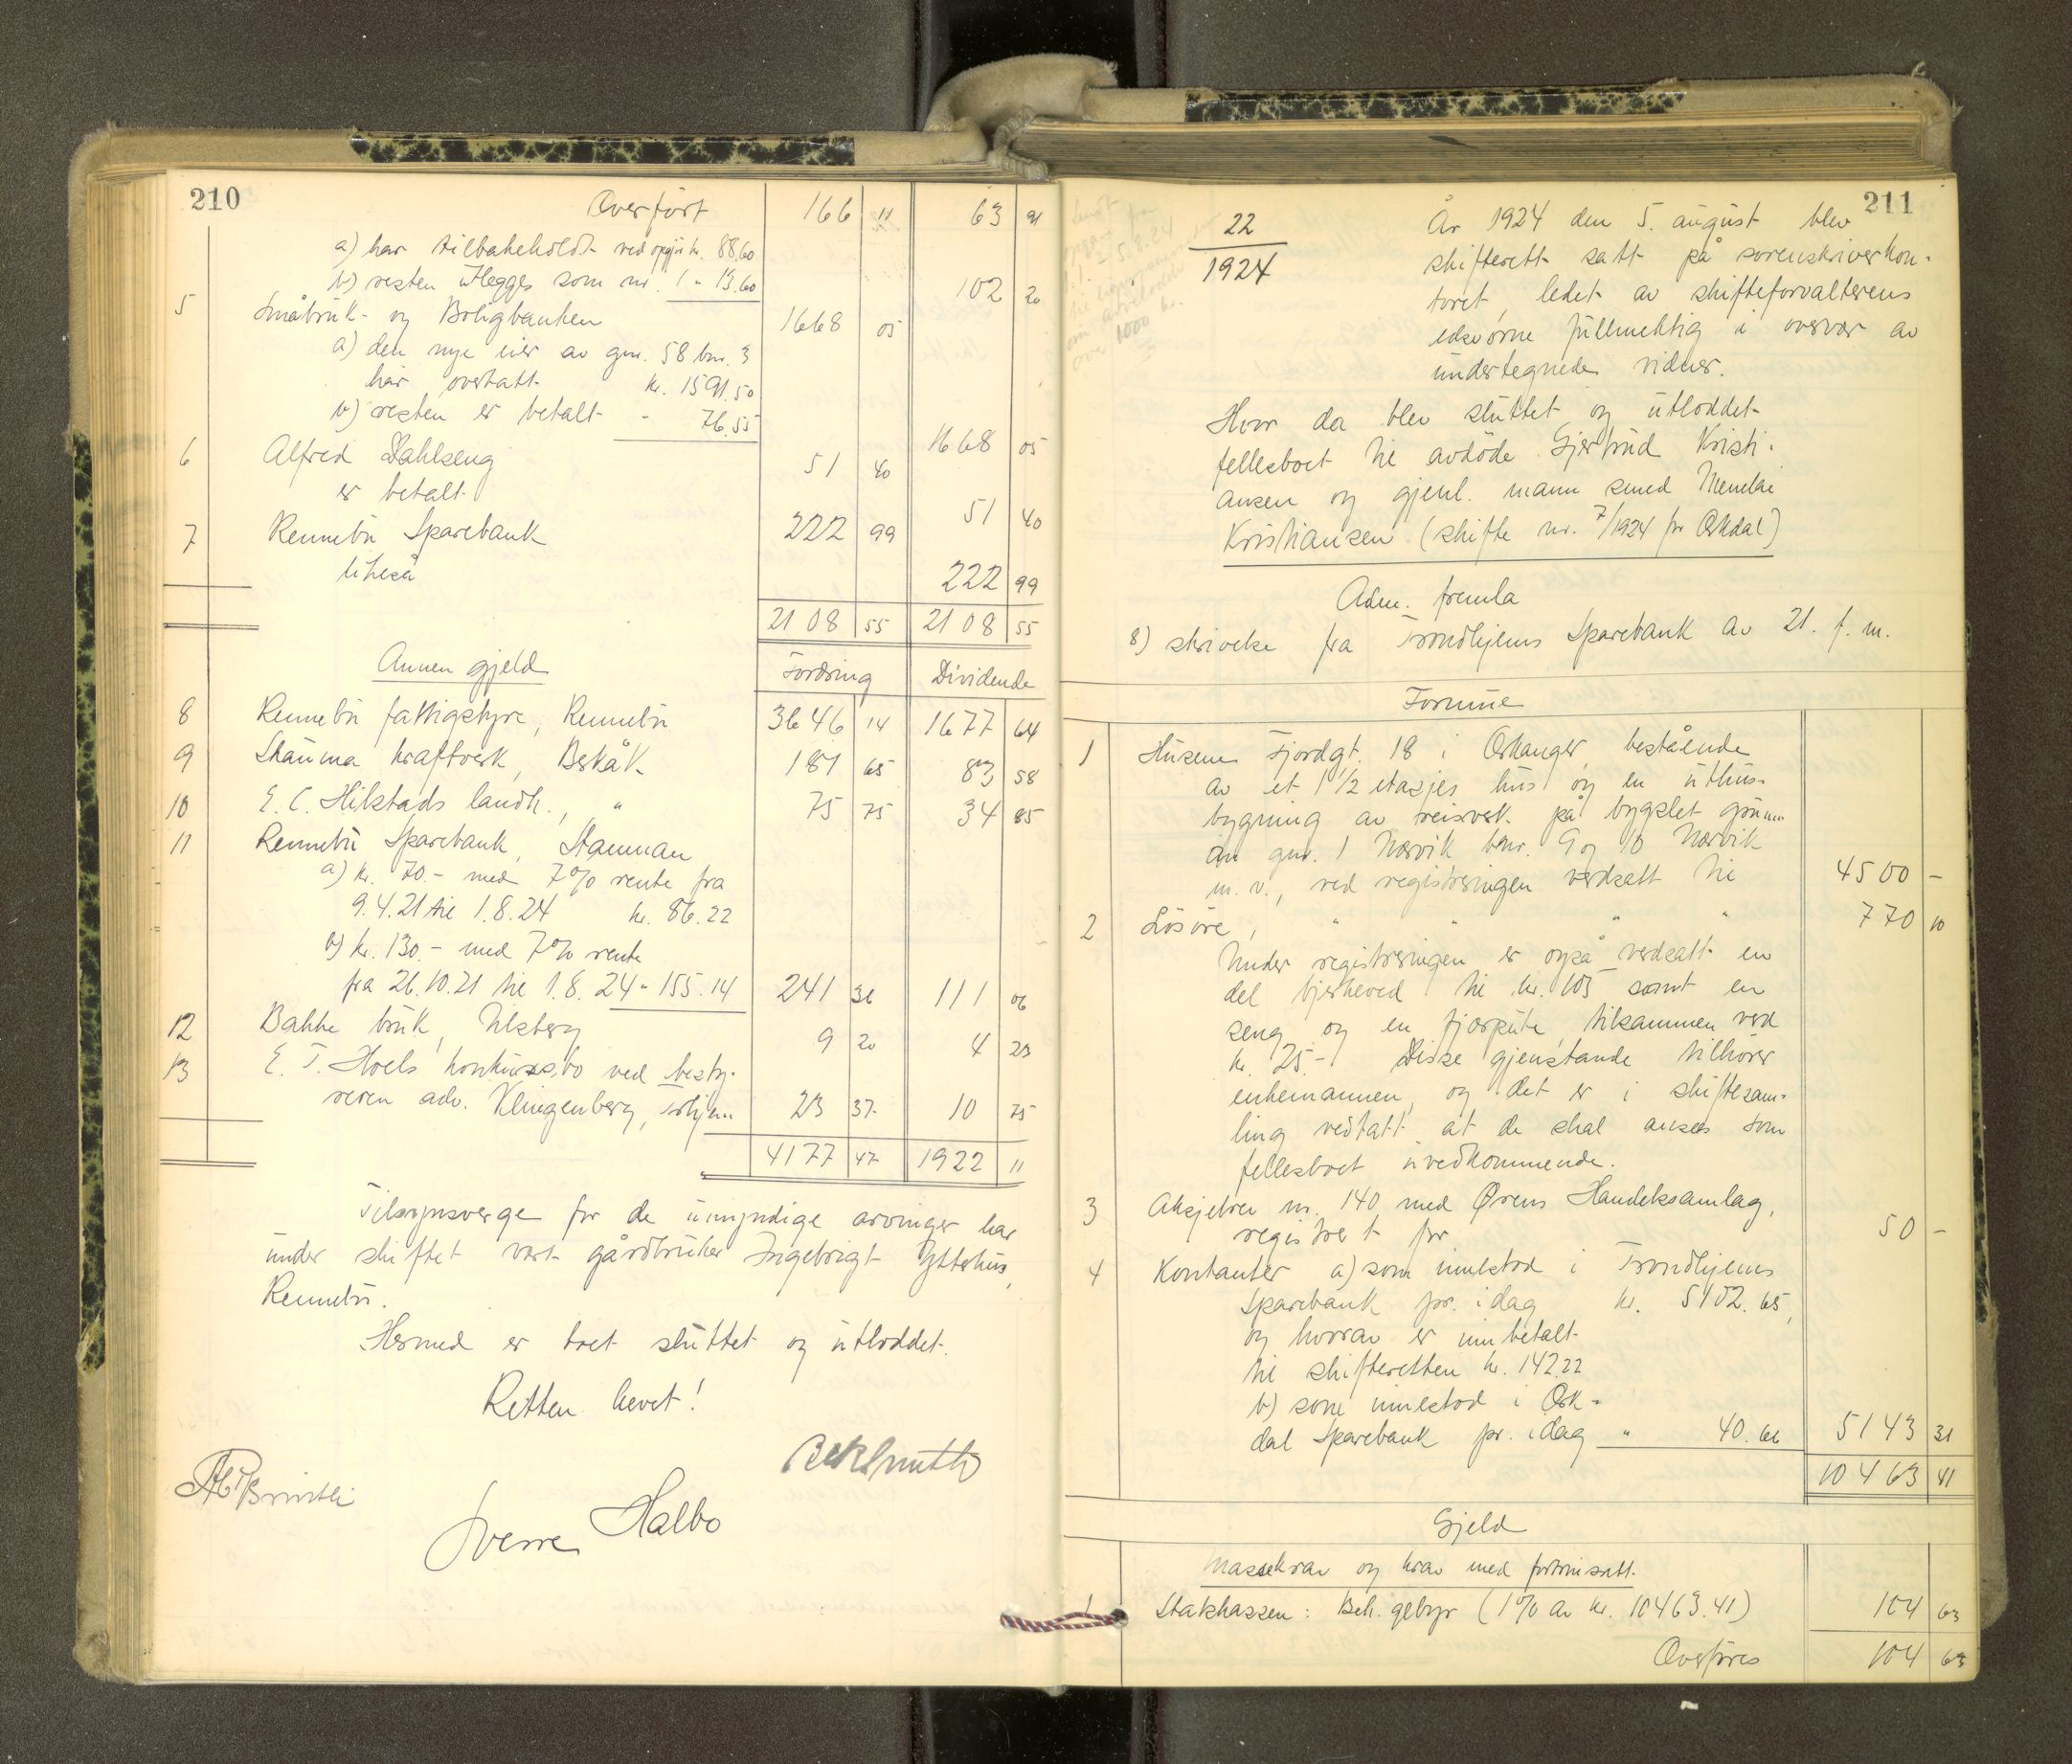 210
Overført 166 11 63 91
a) har tilbakeholdt ved oppgj. kr. 88.60
b) resten utlegges som nr. 1 " 13.60 102 20
5 Småbruk- og Boligbanken 1668 05
a) den nye eier av gnr. 58 bnr. 3
har overtatt kr. 1591.50
b) resten er betalt " 76.55 1668 05
6 Alfred Dahlseng 51 40
er betalt 51 40
7 Rennebu Sparebank 222 99
likeså 222 99
2108 55 2108 55
Annen gjeld Fordring Dividende
8 Rennebu fattigstyre, Rennebu 3646 14 1677 64
9 Skauma kraftverk, Berkåk 181 65 83 58
10 E. C. Hilstads landh., " 75 75 34 85
11 Rennebu Sparebank, Stamnan
a) kr. 70.- med 7% rente fra
9.4.21 til 1.8.24 kr. 86.22
b) kr. 130.- med 7% rente
fra 26.10.21 til 1.8.24 " 155.14 241 36 111 06
12 Bakke bruk, Ulsberg 9 20 4 23
13 E. T. Hoels konkursbo ved besty-
reren adv. Klingenberg, Trhjem 23 37 10 75
4177 47 1922 11
Tilsynsverge for de umyndige arvinger har
under skiftet vært gårdbruker Ingebrigt Ytterhus,
Rennebu.
Hermed er boet sluttet og utloddet.
Retten hevet!
Sverre Halbo
211
22
1924
År 1924 den 5. august blev
skifterett satt på sorenskriverkon-
toret, ledet av skifteforvalterens
edsvorne fullmektig i overvær av
undertegnede vidner.
Hvor da blev sluttet og utloddet
fellesboet til avdøde Gjertrud Kristi-
ansen og gjenl. mann smed Menelai
Kristiansen (skifte nr. 7/1924 for Orkdal)
Adm. fremla
8) skrivelse fra Trondhjems Sparebank av 21. f. m.
Formue
1 Husene Fjordgt. 18 i Orkanger, bestående
av et 1 1/2 etasjes hus og en uthus-
bygning av reisverk på bygslet grunn
av gnr. 1 Nærvik bnr. 9 og 10 Nærvik
m. v., ved registreringen verdsatt til 4500 -
2 Løsøre, " " " " 770 10
Under registreringen er også verdsatt en
del bjerkeved til kr. 105 samt en
seng og en fjærpute, tilsammen verd
kr. 25.- Disse gjenstande tilhører
enkemannen, og det er i skiftesam-
ling vedtatt at de skal anses som
fellesboet uvedkommende.
3 Aksjebrev nr. 140 med Ørens Handelsamlag,
registrert for 50 -
4 Kontanter a) som innestod i Trondhjems
Sparebank pr. idag kr. 5102.65,
og hvorav er innbetalt
til skifteretten kr. 142.22
b) som innestod i Ork-
dal Sparebank pr. idag " 40.66 5143 31
10463 41
Gjeld
Massekrav og krav med fortrinsrett.
1 Statskassen: Beh. gebyr (1% av kr. 10463.41) 104 63
Overføres 104 63